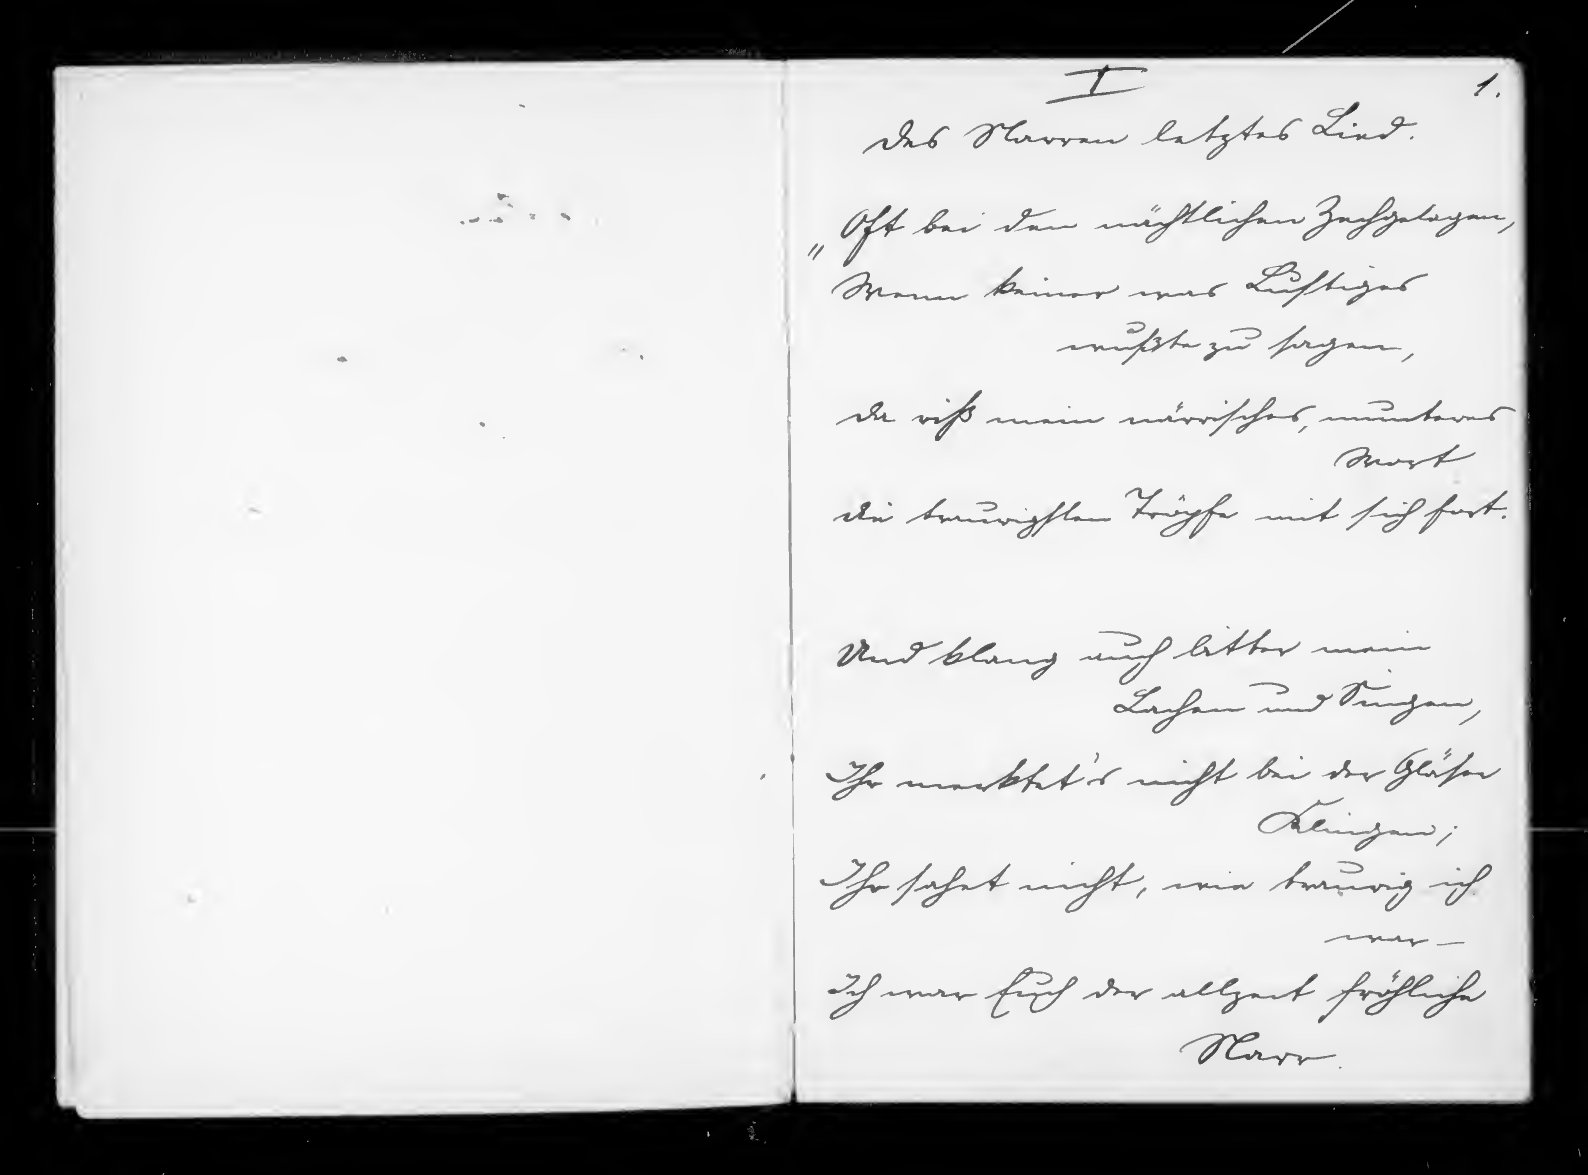 I
1.
Des Narren letztes Lied.
„Oft bei den nächtlichen Zechgelagen,
Wenn keiner was Lustiges
wußte zu sagen,
Da riß mein närrisches, munteres
Wort
Die traurigsten Tröpfe mit sich fort.
Und klang auch bitter mein
Lachen und Singen,
Ihr merktet's nicht bei der Gläser
Klingen;
Ihr sahet nicht, wie traurig ich
war —
Ich war Euch der allzeit fröhliche
Narr.